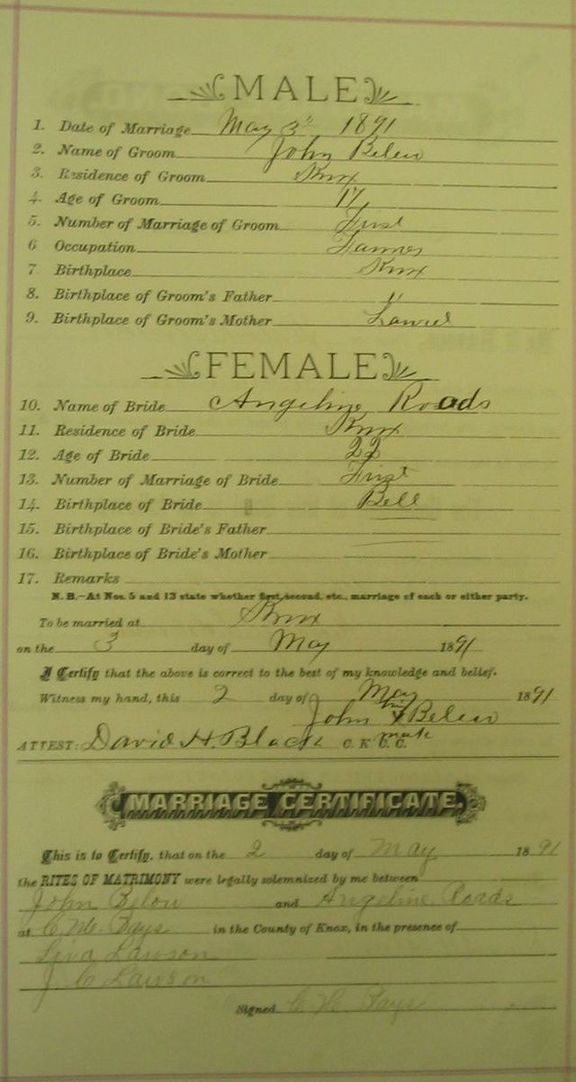 MALE
1. Date of Marriage May 3" 1891
2. Name of Groom John Belew
3. Residence of Groom Knox
4. Age of Groom 17
5. Number of Marriage of Groom First
6 Occupation Farmer
7 Birthplace Knox
8. Birthplace of Groom's Father "
9. Birthplace of Groom's Mother Laurel
FEMALE
10. Name of Bride Angeline Roads
11. Residence of Bride Knox
12. Age of Bride 22
13. Number of Marriage of Bride First
14. Birthplace of Bride Bell
15. Birthplace of Bride's Father
16. Birthplace of Bride's Mother
17. Remarks
N. B.—At Nos. 5 and 13 state whether first, second, etc., marriage of each or either party.
To be married at Knox
on the 3 day of May 1891
I Certify that the above is correct to the best of my knowledge and belief.
Witness my hand, this 2 day of May 1891
his
John X Belew
mark
ATTEST: David H. Black C. K C. C.
MARRIAGE CERTIFICATE.
This is to Certify, that on the 2 day of May 1891
the RITES OF MATRIMONY were legally solemnized by me between
John Belou and Angeline Roads
at C. W. Bays in the County of Knox, in the presence of
Lawson
J C Lawson
Signed C W Bays